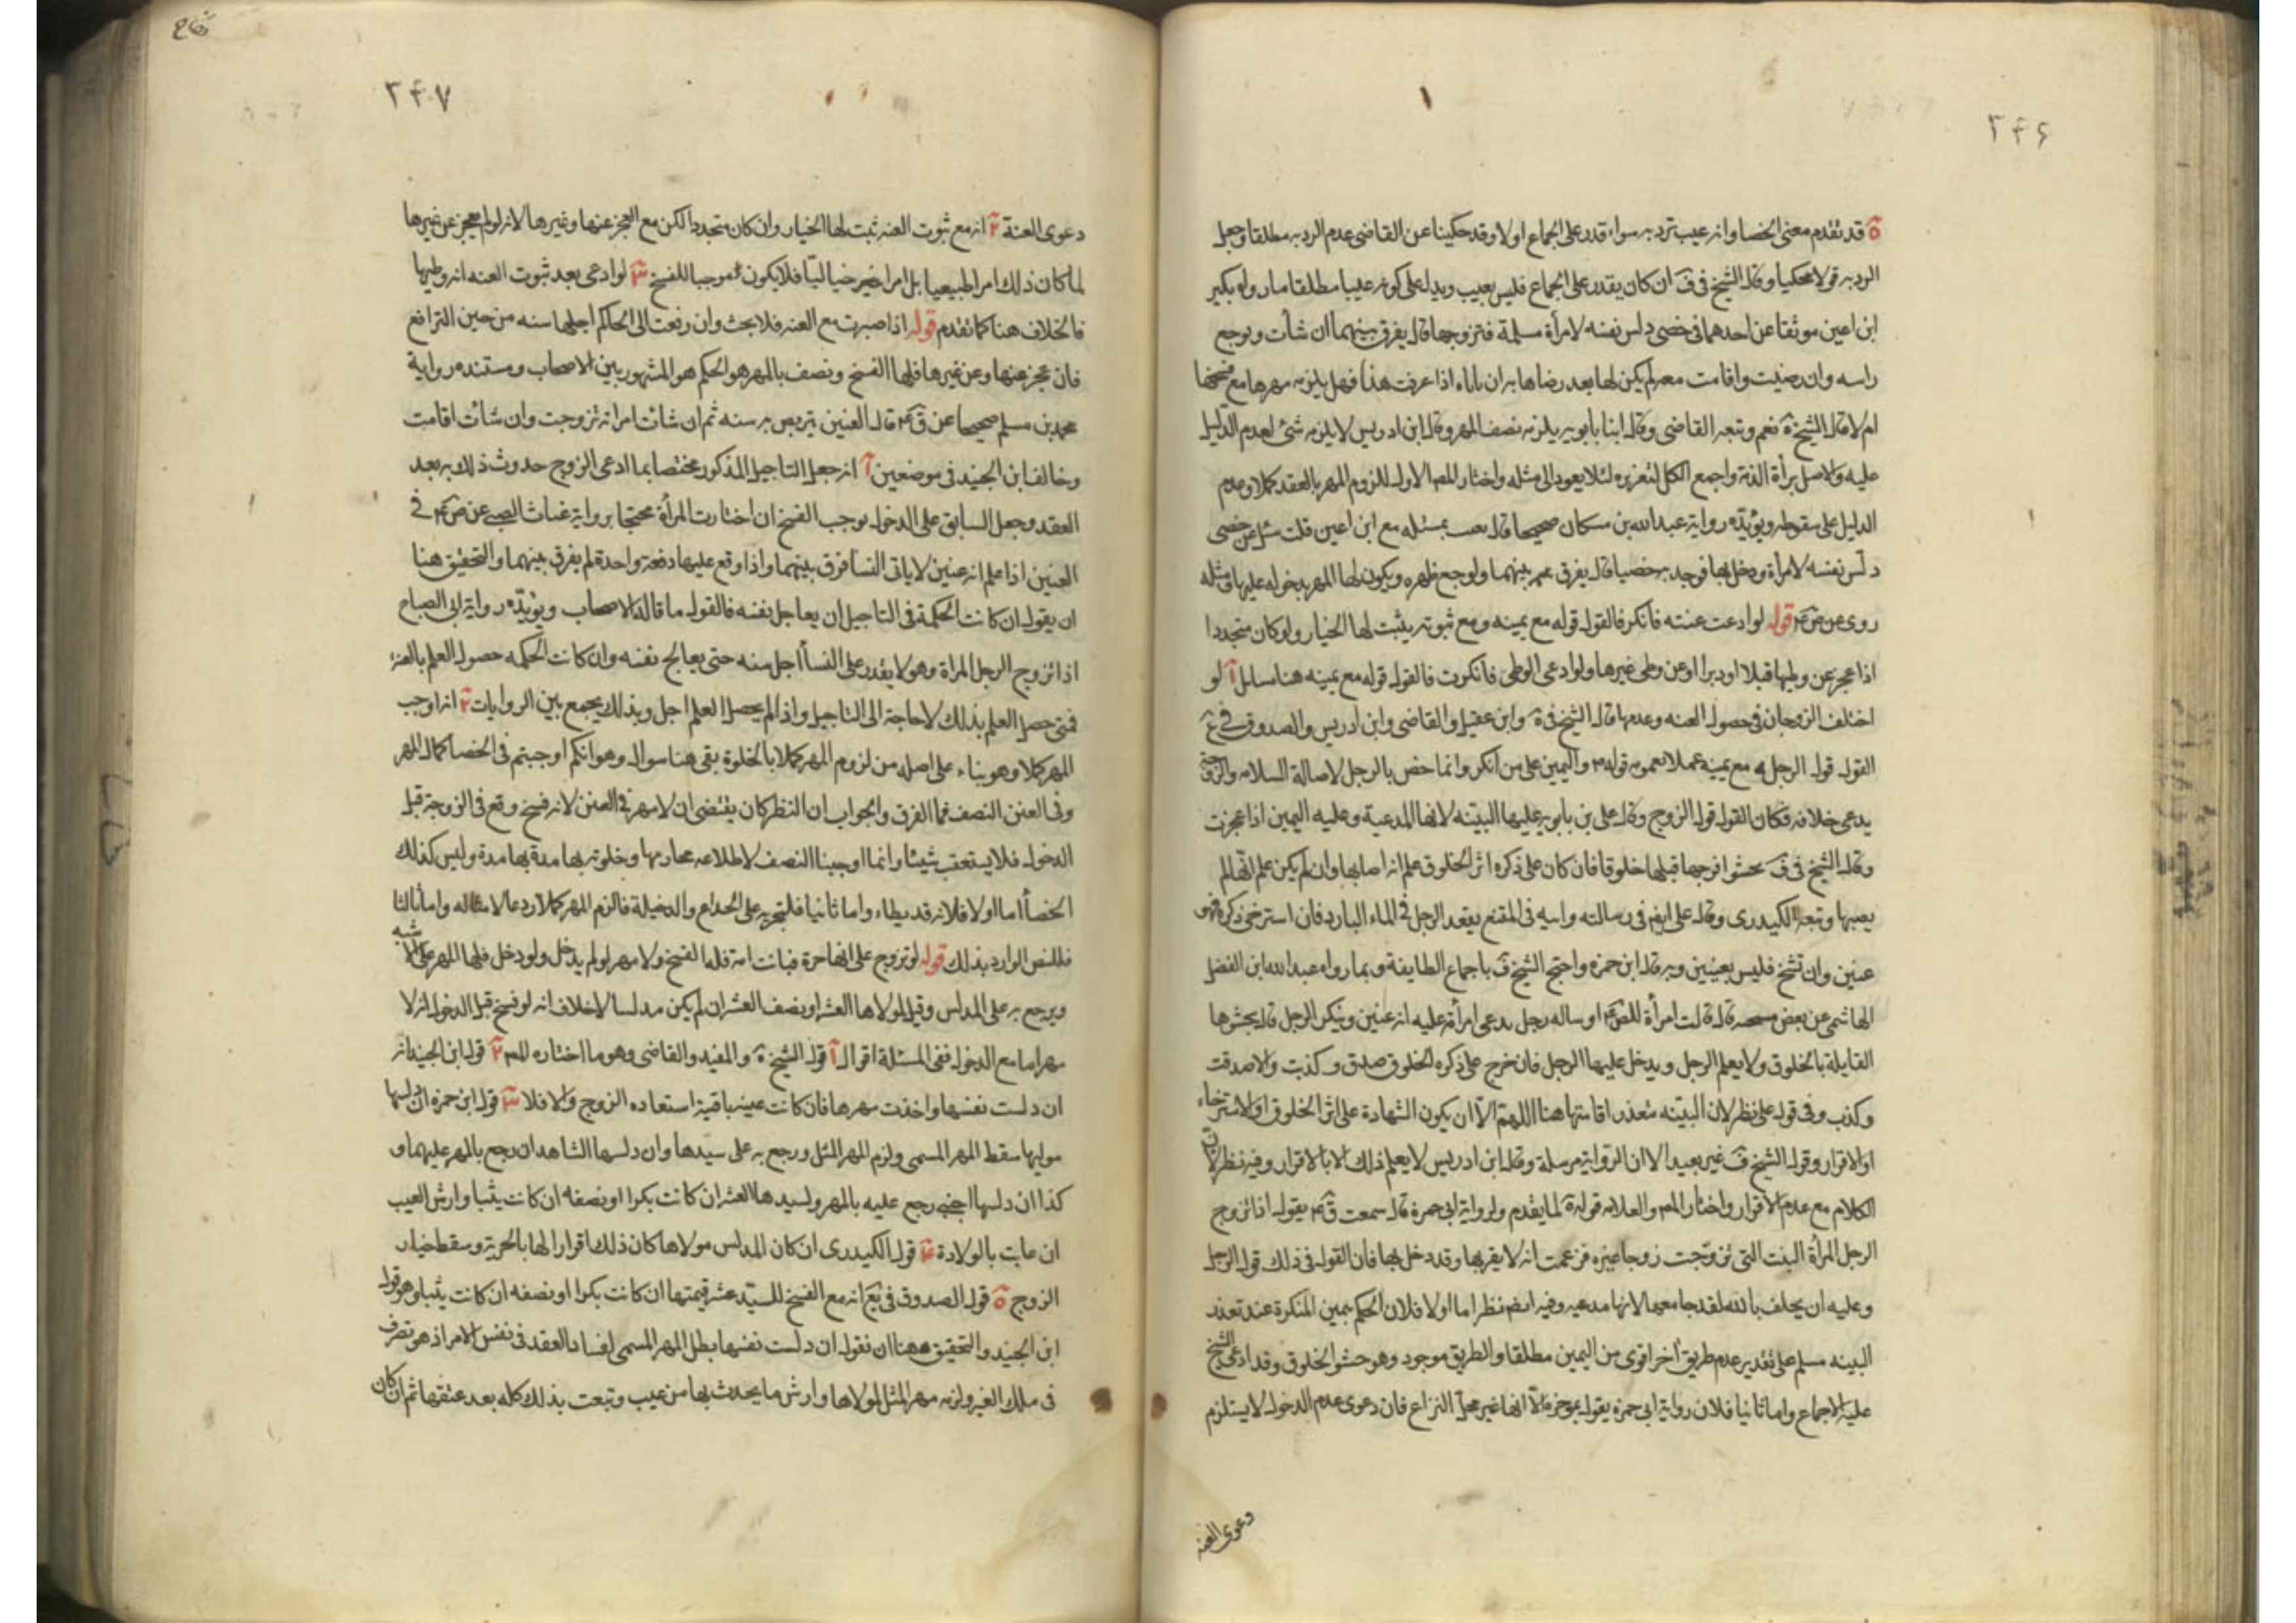 ٢٤٦
ة قد تقدم معنى الخصا وانه عيب ترد به سواء قدر على الجماع او لا وقد حكينا عن القاضى عدم الرد به مطلقا وجعل
الرد به قولا محكيا وقال الشيخ فى ف ان كان يقدر على الجماع فليس بعيب ويدل على كونه عيبا مطلقا ما رواه بكير
ابن اعين موثقا عن احدهما فى خصى دلس نفسه لامرأة مسلمة فتزوجها قال يفرق بينهما ان شأت ويوجع
راسه وان رضيت واقامت معه لم يكن لها بعد رضاها به ان تاباه اذا عرفت هذا فهل يلزمه مهرها مع فسخها
ام لا قال الشيخ ة نعم وتبعه القاضى وقال ابنا بابويه يلزمه نصف المهر وقال ابن ادريس لا يلزمه شئ لعدم الدليل
عليه والاصل برأة الذمة واجمع الكل لتعزيره لئلا يعود الى مثله واختار المص الاول للزوم المهر بالعقد كملا وعدم
الدليل على سقوطه ويؤيده رواية عبدالله بن مسكان صحيحا قال بعث بمسئله مع ابن اعين قلت سئله عن خصى
دلس نفسه لامرأة ودخل بها فوجدته خصيا قال يفرق بينهما ويوجع ظهره ويكون لها المهر بدخوله عليها ومثله
روى عن ص ع قوله لو ادعت عنته فانكر فالقول قوله مع يمينه ومع ثبوته يثبت لها الخيار ولو كان متجددا
اذا عجز عن وطيها قبلا او دبرا او عن وطى غيرها ولو ادعى الوطى فانكرت فالقول قوله مع يمينه هنا مسايل آ لو
اختلف الزوجان فى حصول العنه وعدمها قال الشيخ فى ة وابن عقيل والقاضى وابن ادريس والصدوق فى ع
القول قول الرجل مع يمينه عملا بعموم قوله ع واليمين على من انكر وانما خص بالرجل لاصالة السلامه والزوجة
يدعى خلافه فكان القول قول الزوج وقال على بن بابويه عليها البينه لانها المدعية وعليه اليمين اذا عجزت
وقال الشيخ فى ف تحشوا فرجها قبلها خلوقا فان كان على ذكره اثر الخلوق علم انه اصابها وان لم يكن علم انه لم
يصبها وتبعه الكيدرى وقال على ايضا فى رسالته وابنه فى المقنع يقعد الرجل فى الماء البارد فان استرخى ذكره فهو
عنين وان تشنج فليس بعنين وبه قال ابن حمزه واحتج الشيخ ف باجماع الطايفة وبما رواه عبدالله ابن الفضل
الهاشمى عن بعض مشيخته قال قالت امرأة للص ع او ساله رجل يدعى امرأته عليه انه عنين وينكر الرجل قال يحشوها
القابلة بالخلوق ولا يعلم الرجل ويدخل عليها الرجل فان خرج على ذكره الخلوق صدق وكذبت والا صدقت
وكذب وفى قول على نظر لان البينه متعذر اقامتها هنا اللهم الا ان يكون الشهادة على اثر الخلوق او الاسترخاء
او الاقرار وقول الشيخ ف غير بعيد الا ان الرواية مرسلة وقال ابن ادريس لا يعلم ذلك الا بالاقرار وفيه نظر لان
الكلام مع عدم الاقرار واختار المص والعلامه قول ة لما يقدم ولرواية ابى حمزة قال سمعت ق ع يقول اذا تزوج
الرجل المرأة البنت التى تزوجت زوجا غيره فزعمت انه لا يقربها وقد دخل بها فان القول فى ذلك قول الرجل
وعليه ان يحلف بالله لقد جامعها لانها مدعيه وفيه ايضا نظر اما اولا فلان الحكم بيمين المنكرة عند تعذر
البينه مسلم على تقدير عدم طريق اخر اقوى من اليمين مطلقا والطريق موجود وهو حشو الخلوق وقد ادعى الشيخ
عليه الاجماع واما ثانيا فلان رواية ابى حمزه يقول بموجبه الا انها غير محل النزاع فان دعوى عدم الدخول لا يستلزم
دعوى العنه
٢٤٧
دعوى العنة ٢ انه مع ثبوت العنه ثبت لها الخيار وان كان متجددا لكن مع العجز عنها وغيرها لانه لو لم يعجز عن غيرها
لما كان ذلك امرا طبيعيا بل امرا خياليا فلا يكون موجبا للفسخ ٣ لو ادعى بعد ثبوت العنه انه وطيها
فالخلاف هنا كما تقدم قوله اذا صبرت مع العنه فلا بحث وان رفعت الى الحاكم اجلها سنه من حين الترافع
فان عجز عنها وعن غيرها فلها الفسخ ونصف بالمهر هو الحكم هو المشهور بين الاصحاب ومستنده رواية
محمد بن مسلم صحيحا عن ق ع قال العنين يتربص به سنه ثم ان شائت امراته تزوجت وان شائت اقامت
وخالف ابن الجنيد فى موضعين آ انه جعل التاجيل المذكور مختصا بما ادعى الزوج حدوث ذلك به بعد
العقد وجعل السابق على الدخول يوجب الفسخ ان اختارت المرأة محتجا برواية غياث الضبى عن ص ع فى
العنين اذا علم انه عنين لا ياتى النسا فرق بينهما واذا وقع عليها دفعة واحدة لم يفرق بينهما والتحقيق هنا
ان يقول ان كانت الحكمة فى التاجيل ان يعاجل نفسه فالقول ما قاله الاصحاب ويؤيده رواية ابى الصباح
اذا تزوج الرجل المراة وهو لا يقدر على النسا اجل سنه حتى يعالج نفسه وان كانت الحكمه حصول العلم بالعنه
فمتى حصل العلم بذلك لا حاجة الى التاجيل واذا لم يحصل العلم اجل وبذلك يجمع بين الروايات ٢ انه اوجب
المهر كملا وهو بناء على اصله من لزوم المهر كملا بالخلوة بقى هنا سوال وهو انكم اوجبتم فى الخصا كمال المهر
وفى العنن النصف فما الفرق والجواب ان النظر كان يقتضى ان لا مهر فى العنن لانه فسخ وقع فى الزوجة قبل
الدخول فلا يستعقب شيئا وانما اوجبنا النصف لاطلاعه محارمها وخلوته بها مدة وليس كذلك
الخصا اما اولا فلانه قد يطاء واما ثانيا فلتجريه على الخداع والحيلة فالزم المهر كملا ردعا لامثاله واما ثالثا
فللنص الوارد بذلك قوله لو تزوج على انها حرة فبانت امة فله الفسخ ولا مهر لو لم يدخل ولو دخل فلها المهر على الاشبه
ويرجع به على المدلس وقيل لمولاها العشر او نصف العشر ان لم يكن مدلسا لا خلاف انه لو فسخ قبل الدخول انه لا
مهر اما مع الدخول ففى المسئلة اقوال آ قول الشيخ ة والمفيد والقاضى وهو ما اختاره المص ٢ قول ابن الجنيد انه
ان دلست نفسها واخذت مهرها فان كانت عينه باقية استعاده الزوج والا فلا ٣ قول ابن حمزه ان دلسها
موليها سقط المهر المسمى ولزم المهر المثل ورجع به على سيدها وان دلسها الشاهدان رجع بالمهر عليهما و
كذا ان دلسها اجنبى رجع عليه بالمهر ولسيدها العشر ان كانت بكرا او نصفه ان كانت ثيبا وارش العيب
ان عابت بالولادة ٤ قول الكيدرى ان كان المدلس مولاها كان ذلك اقرارا لها بالحرية وسقط خيار
الزوج ة قول الصدوق فى يع انه مع الفسخ للسيد عشر قيمتها ان كانت بكرا او نصفه ان كانت ثيبا وهو قول
ابن الجنيد والتحقيق ههنا ان نقول ان دلست نفسها بطل المهر المسمى لفساد العقد فى نفس الامر اذ هو تصرف
فى ملك الغير ولزمه مهر المثل لمولاها وارش ما يحدث بها من عيب وتبعت بذلك كله بعد عتقها ثم ان كان